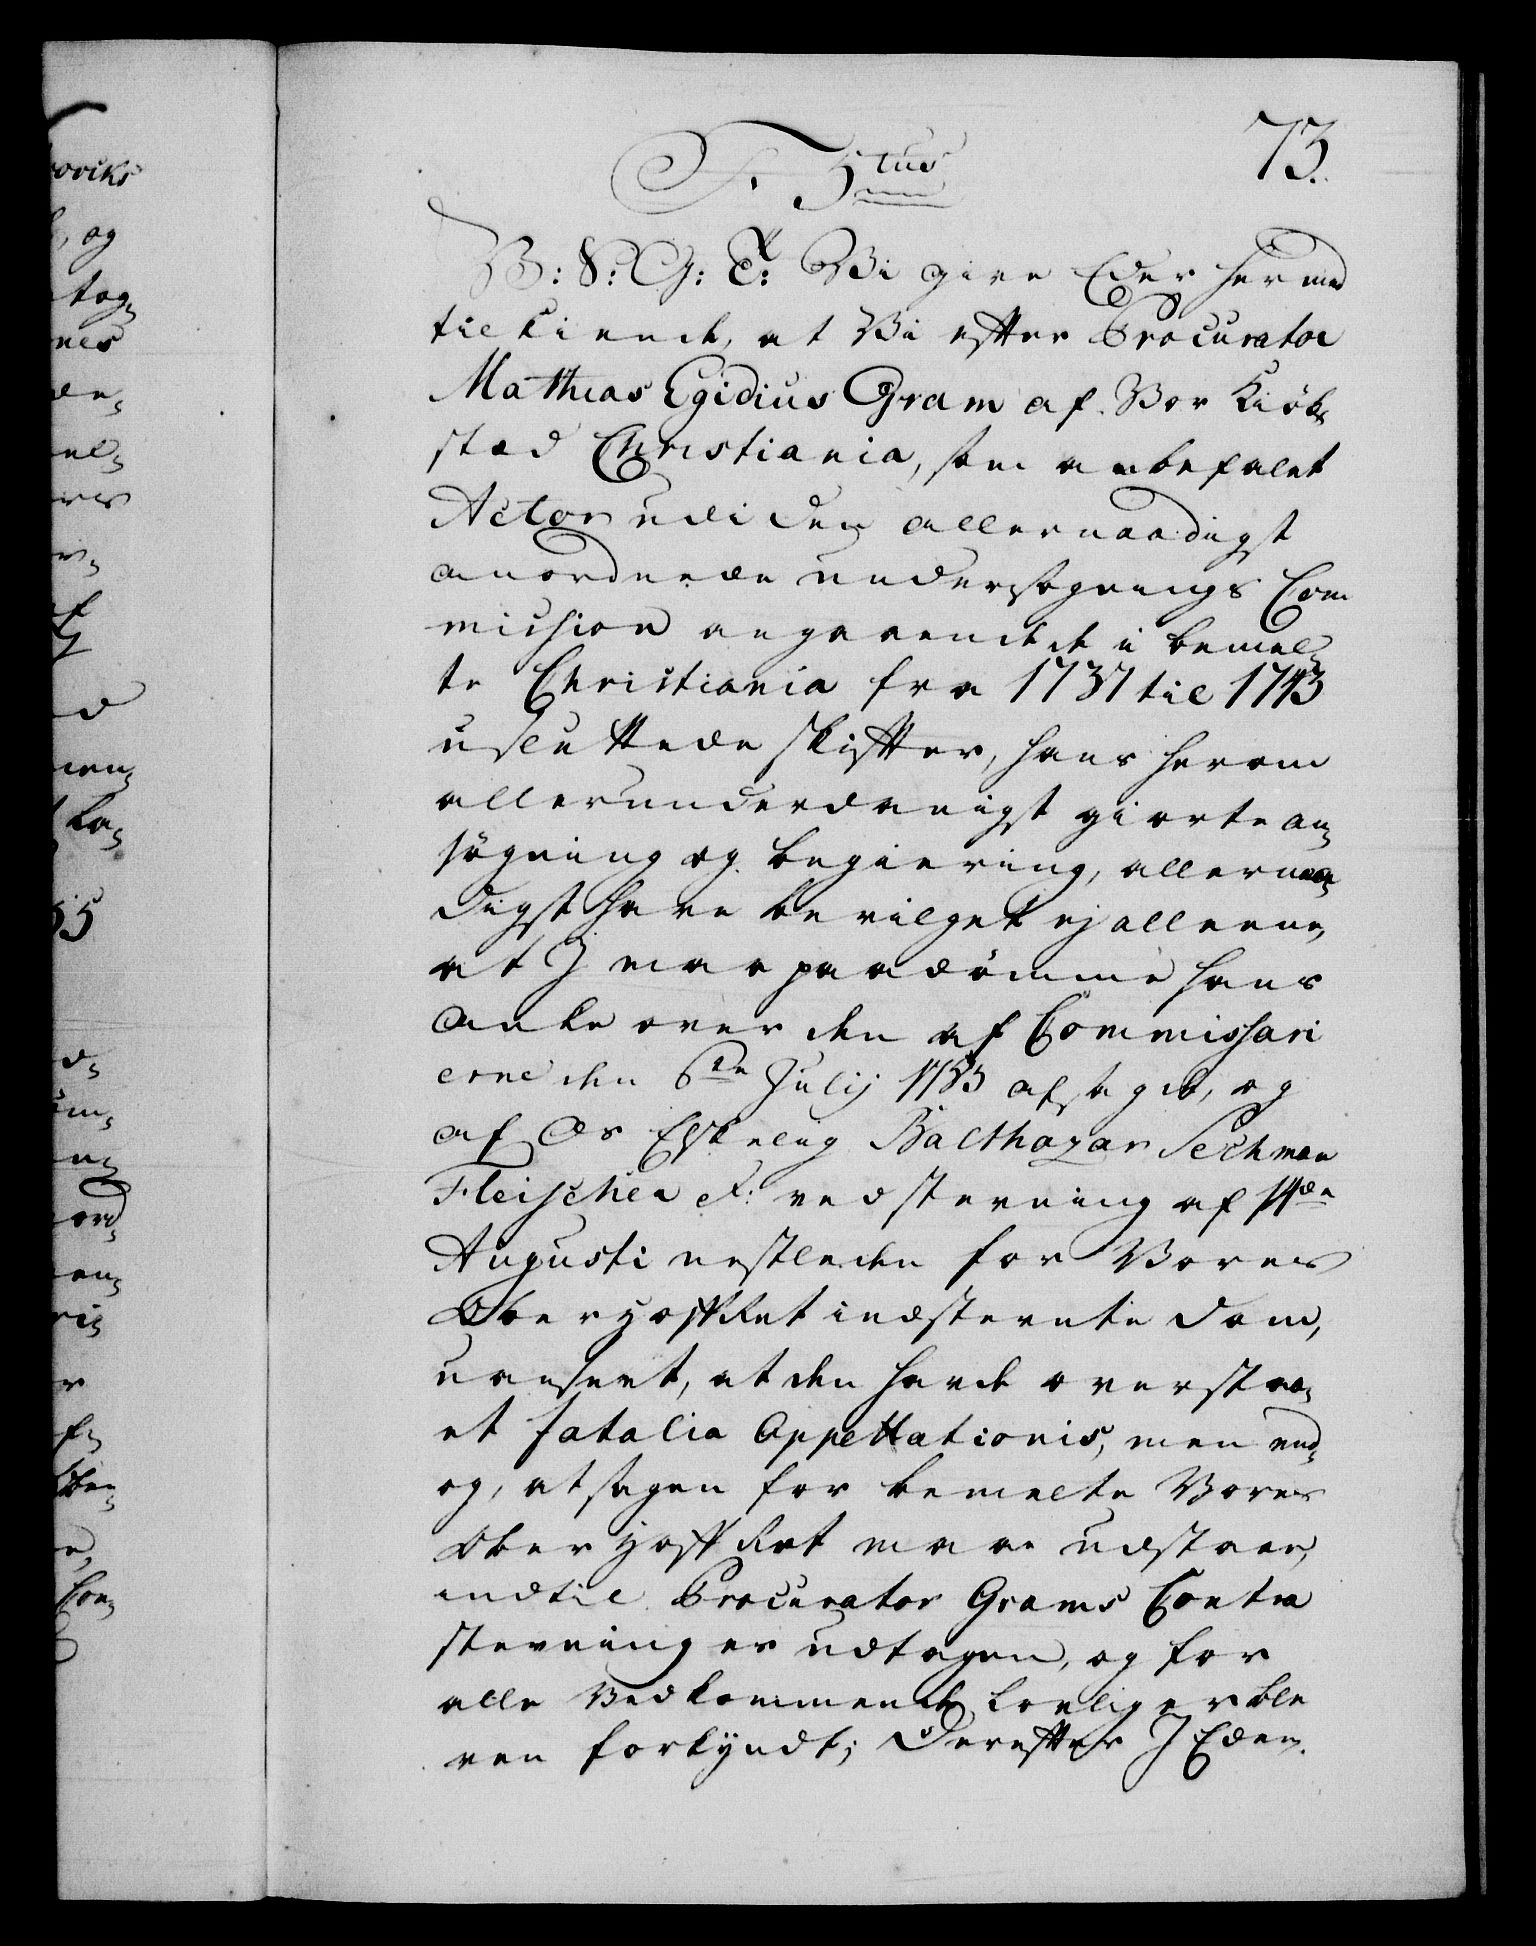 73.
F. 5tus
B: S: G: T: Vi give Eder her med
til kiende, at Vi efter Procurator
Mathias Egidius Gram af Vor Kiöb-
stad Christiania, som anbefalet
Actor udi den allernaadigst
anordnede undersøgnings Com
mission angaaende de i bemel-
te Christiania fra 1737 til 1743
usluttede skifter, hans herom
allerunderdanigst giorte an-
søgning og begiering, allernaa-
digst have bevilget ej alleene,
at J maa paadömme hans
Anke over den af Commissari
erne den 6de Julij 1755 afsagde, og
af Os Elskelig Balthazar Sechman
Fleischer etc: ved stevning af 14de
Augusti nestleden for Vores
Ober Hoff Ret indstevnte Dom,
uanseet, at den havde overstaa-
et fatalia Appellationis, men end-
og, at sagen for bemelte Vores
Ober Hoff Ret maae udstaae,
indtil Procurator Grams Contra
stevning er udtagen, og for
alle Vedkommende lovlig er ble
ven forkyndt; Derefter J Eder